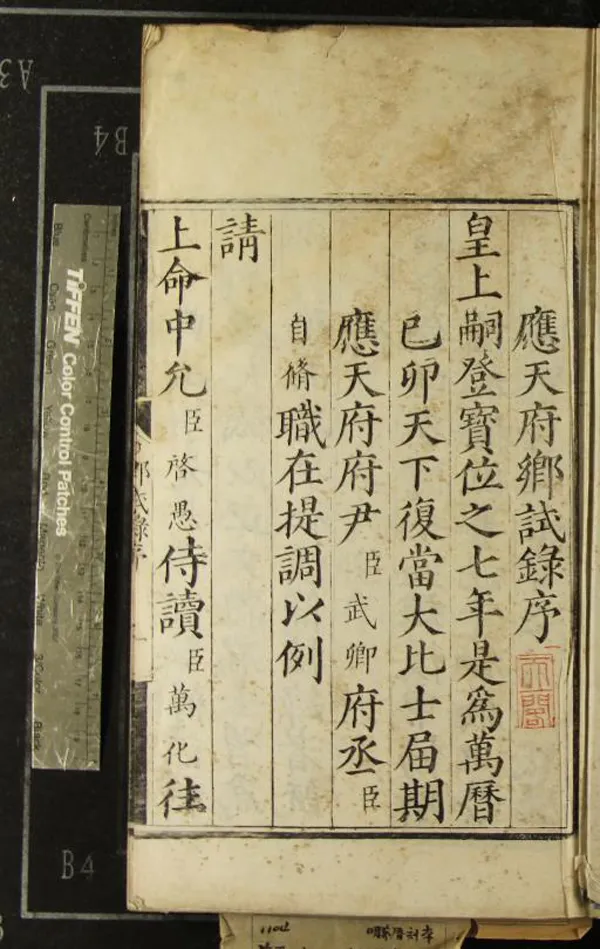 應天府鄉試錄序
天閣
皇上嗣登寶位之七年是爲萬曆
己卯天下復當大比士屆期
應天府府尹臣武卿府丞臣
自脩職在提調以例
請
上命中允臣啓愚侍讀臣萬化往
鄉試錄序
TIFFEN Color Control Patches
A3
B4
B4